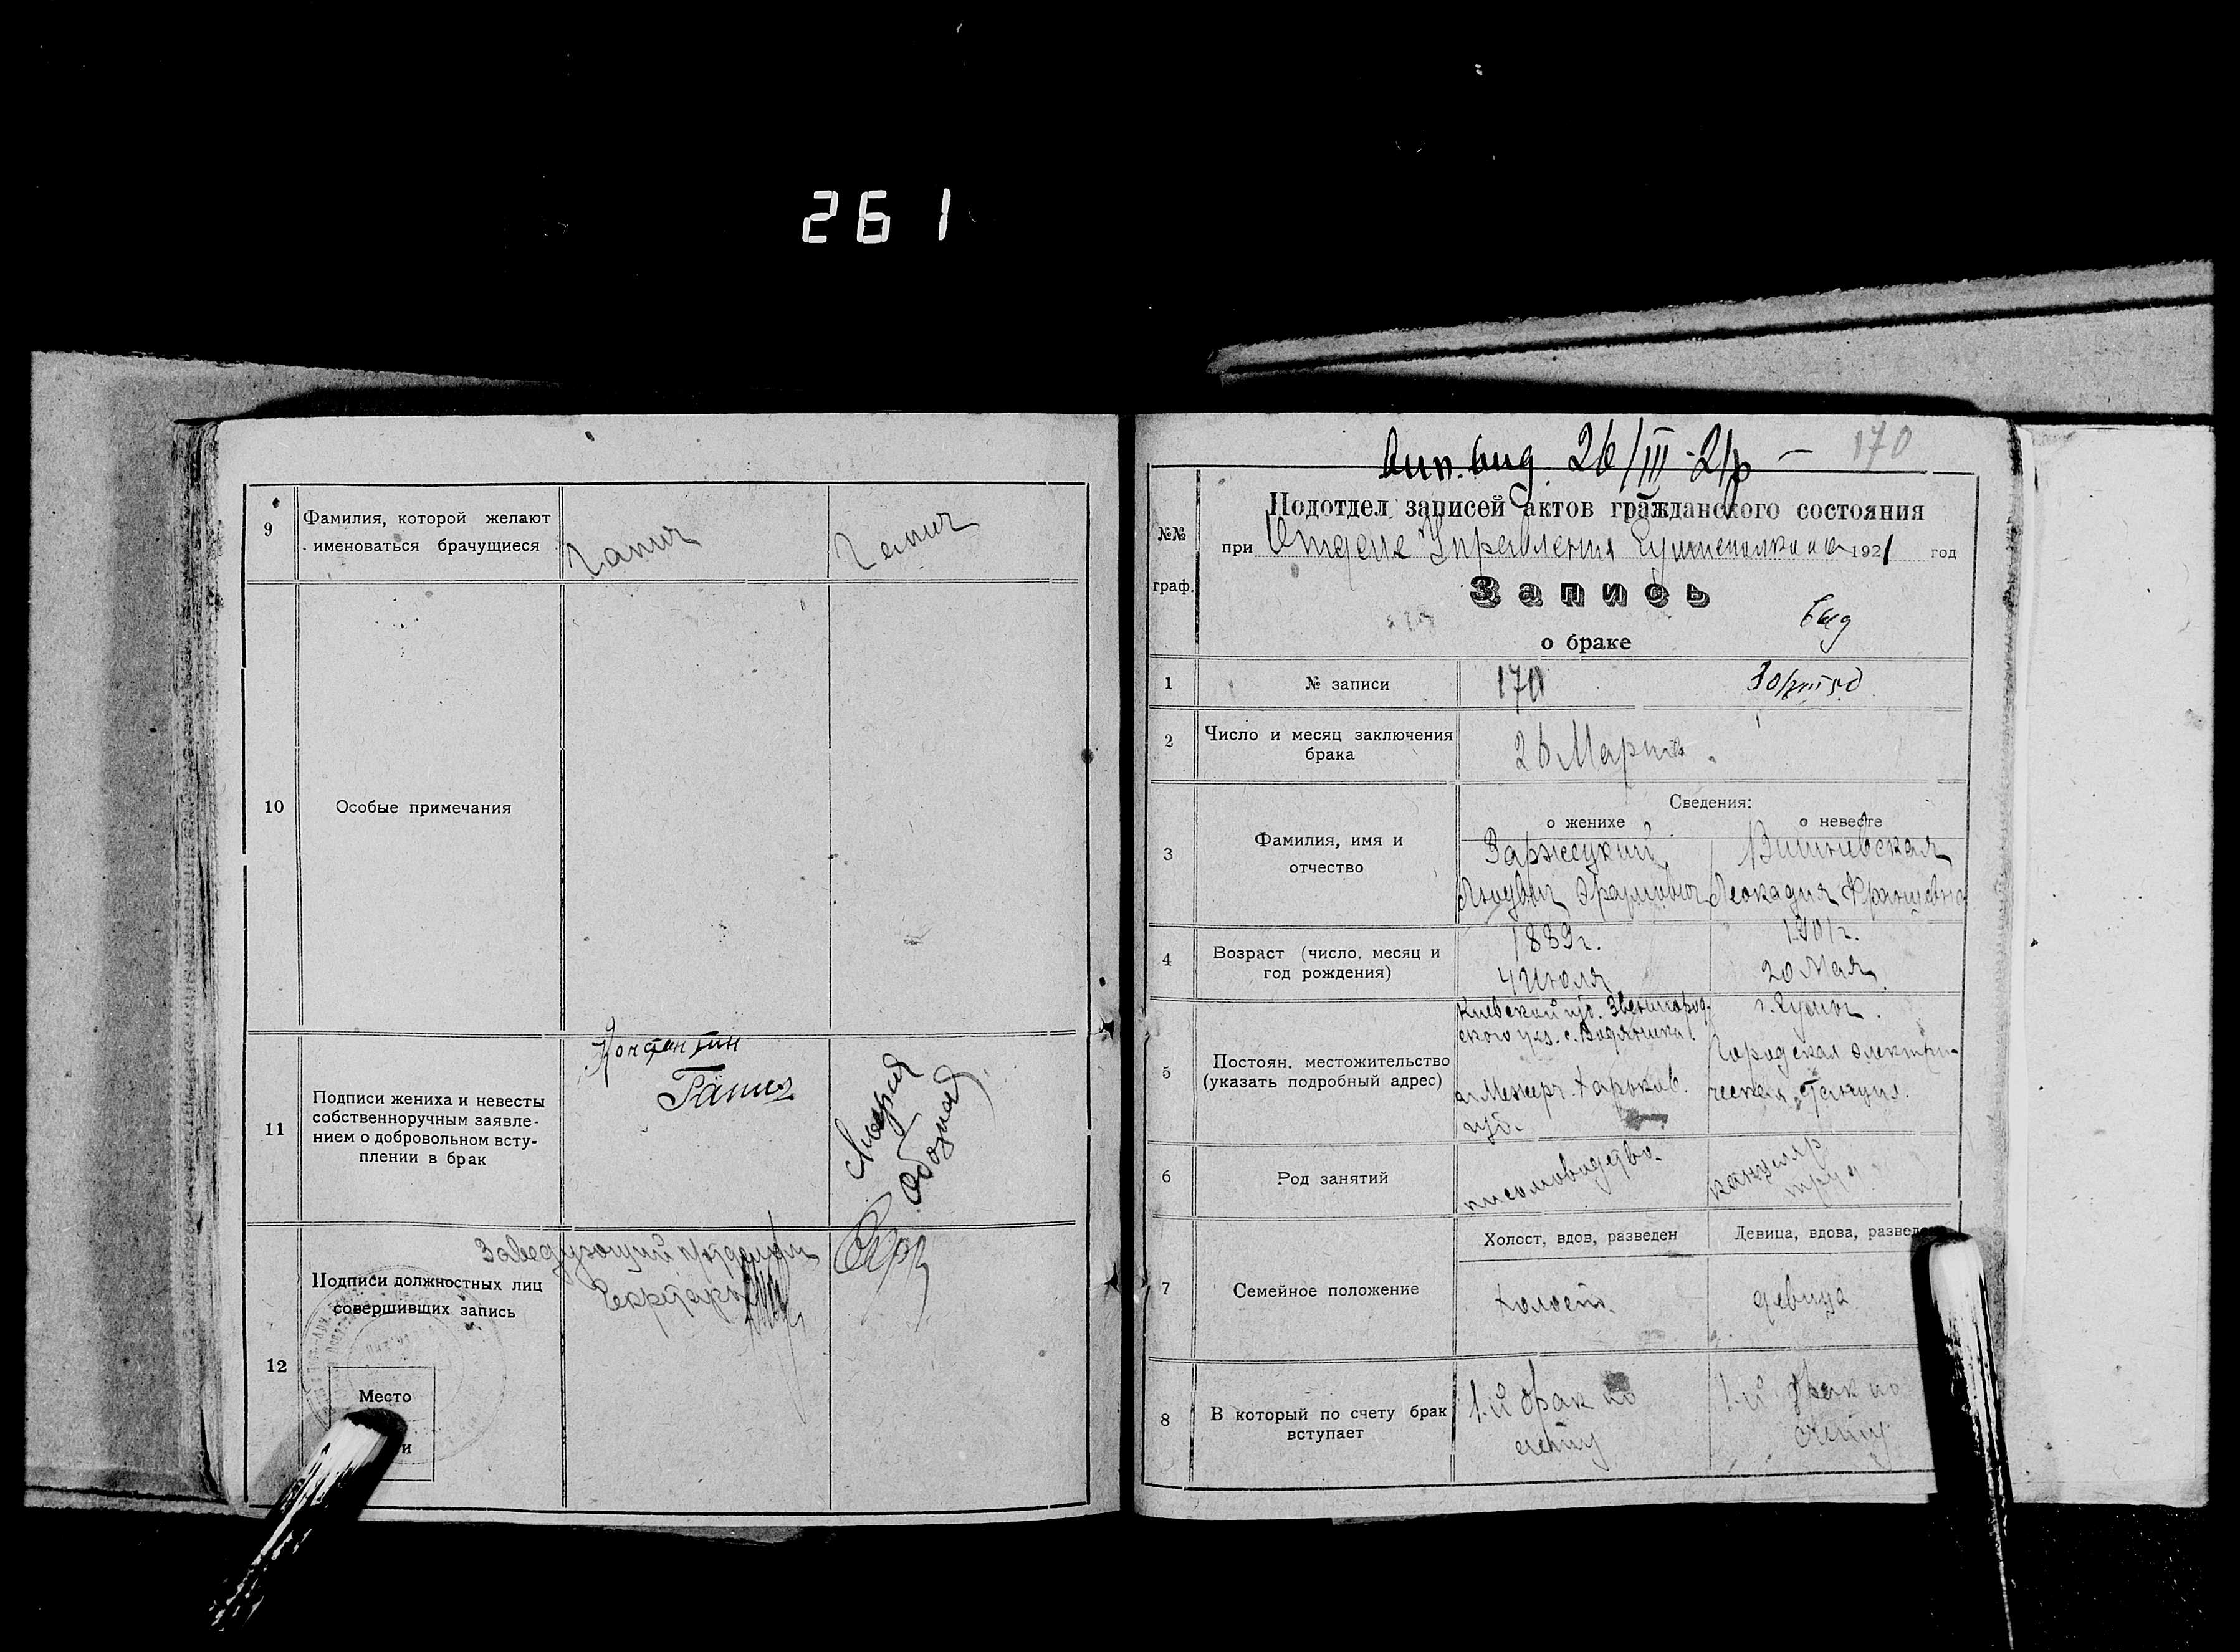 261
9
Фамилия, которой желают
именоваться брачущиеся
Гапич
Гапич
10
Особые примечания
11
Подписи жениха и невесты
собственноручным заявле-
нием о добровольном всту-
плении в брак
Константин
Гапич
Мария
Обозная
12
Подписи должностных лиц
совершивших запись
Заведующий
Секретарь
Место
и
26/III-21р —
170
№№
граф.
Подотдел записей актов гражданского состояния
при Отделе Управления 1921 год
Запись
о браке
выд
1
№ записи
170
2
Число и месяц заключения
брака
26 Марта.
3
Фамилия, имя и
отчество
Сведения:
о женихе
о невесте
Заржецкий
Людвиг
Вишневская
Леокадия Францевна
4
Возраст (число, месяц и
год рождения)
1889г.
4 Июля
1901г.
20 Мая
5
Постоян. местожительство
(указать подробный адрес)
Киевской губ. Звенигород-
ского уез. с.
Харьков.
губ.
г. Сумы.
Городская электри-
ческая станция.
6
Род занятий
письмоводство.
канцеляр
труд
7
Семейное положение
Холост, вдов, разведен
Девица, вдова, разведе
холост.
девица
8
В который по счету брак
вступает
1-й брак по
счету
1-й брак по
счету